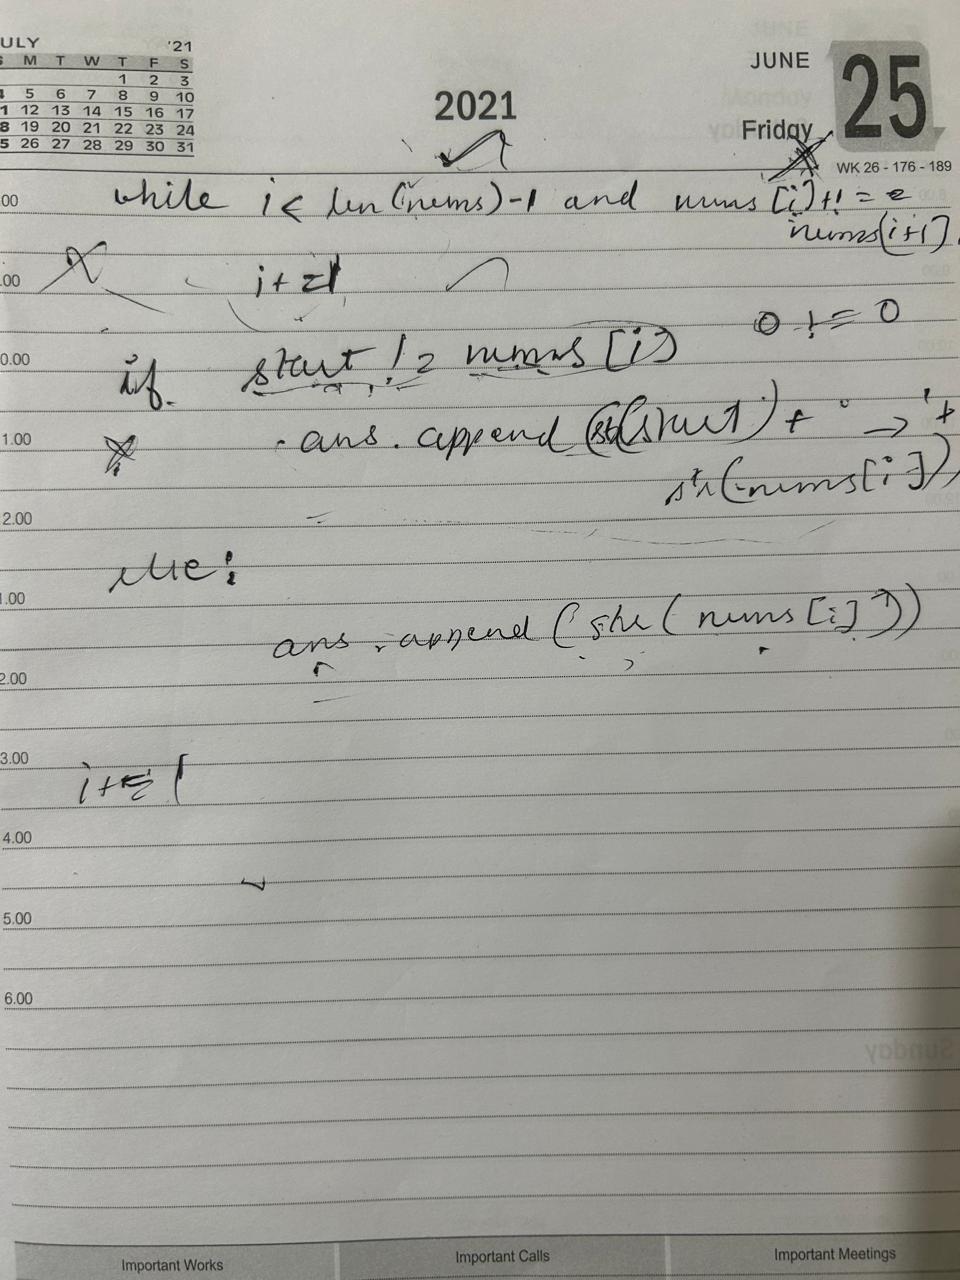 JULY '21
S M T W T F S
1 2 3
4 5 6 7 8 9 10
11 12 13 14 15 16 17
18 19 20 21 22 23 24
25 26 27 28 29 30 31
2021
JUNE
25
Friday
WK 26 - 176 - 189
while i < len(nums)-1 and nums[i]+1 ==
nums[i+1]
i+=1
0 != 0
if start != nums[i]
ans.append(str(start) + '->' +
str(nums[i]))
else:
ans.append(str(nums[i]))
i+=1
10.00
11.00
12.00
1.00
2.00
3.00
4.00
5.00
6.00
Sunday
Important Works
Important Calls
Important Meetings